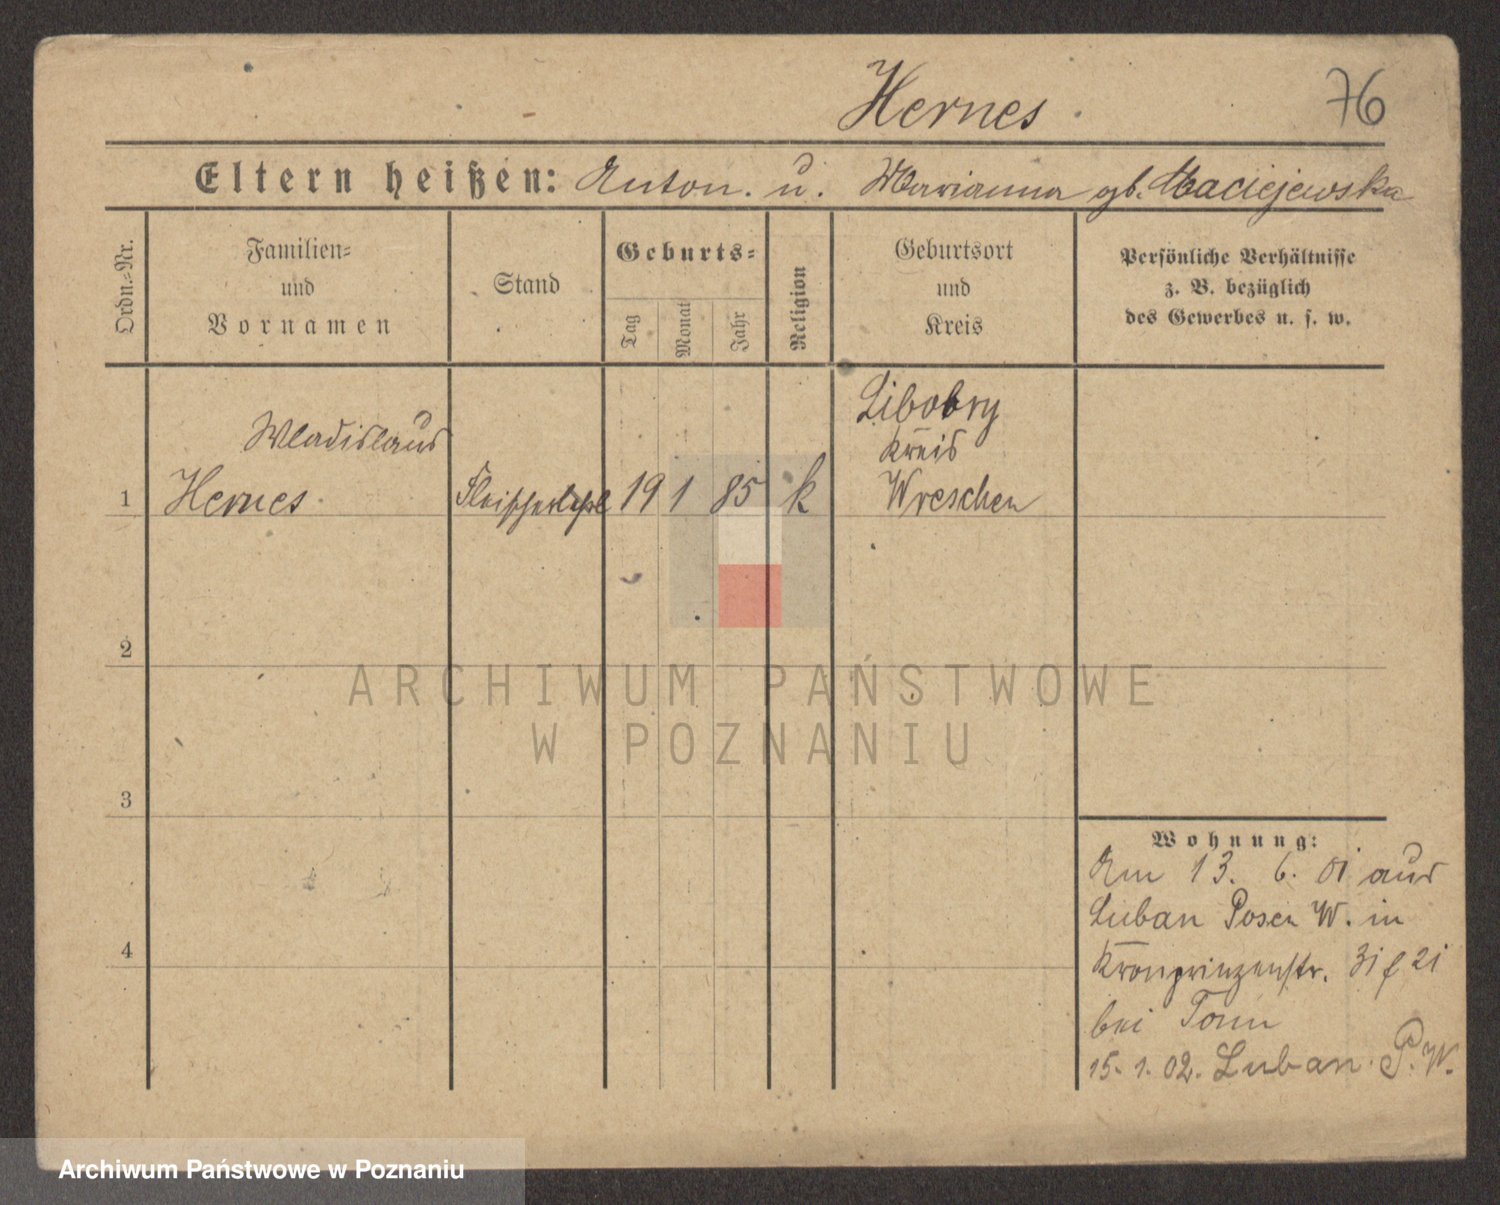 Hernes. 76
Eltern heißen: Anton. u. Marianna gb. Maciejewska
Ordn.-Nr.
Familien-
und
Vornamen
Stand
Geburts-
Tag
Monat
Jahr
Religion
Geburtsort
und
Kreis
Persönliche Verhältnisse
z. B. bezüglich
des Gewerbes u. s. w.
Wladislaus
1 Hernes. 19 1 85 k
Libobry
Kreis
Wreschen
2
3
4
ARCHIWUM PAŃSTWOWE
W POZNANIU
Wohnung:
Am 13. 6. 01 aus
Luban Posen W. in
Kronprinzenstr.
bei
15. 1. 02. Luban. P. W.
Archiwum Państwowe w Poznaniu